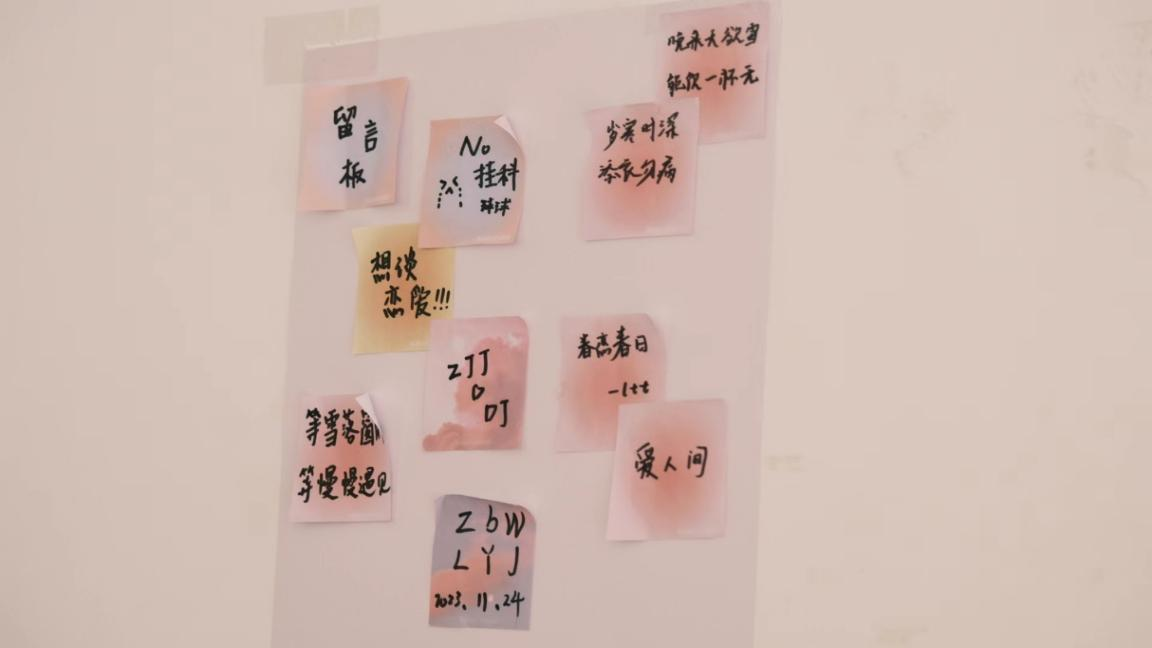 晚来天欲雪
能饮一杯无
留言
板
No
挂科
球球
岁寒时深
添衣勿病
想谈
恋爱!!!
ZJJ
DJ
春燕春日
等雪落
等慢慢遇见
爱人间
ZbW
LYJ
2023.11.24